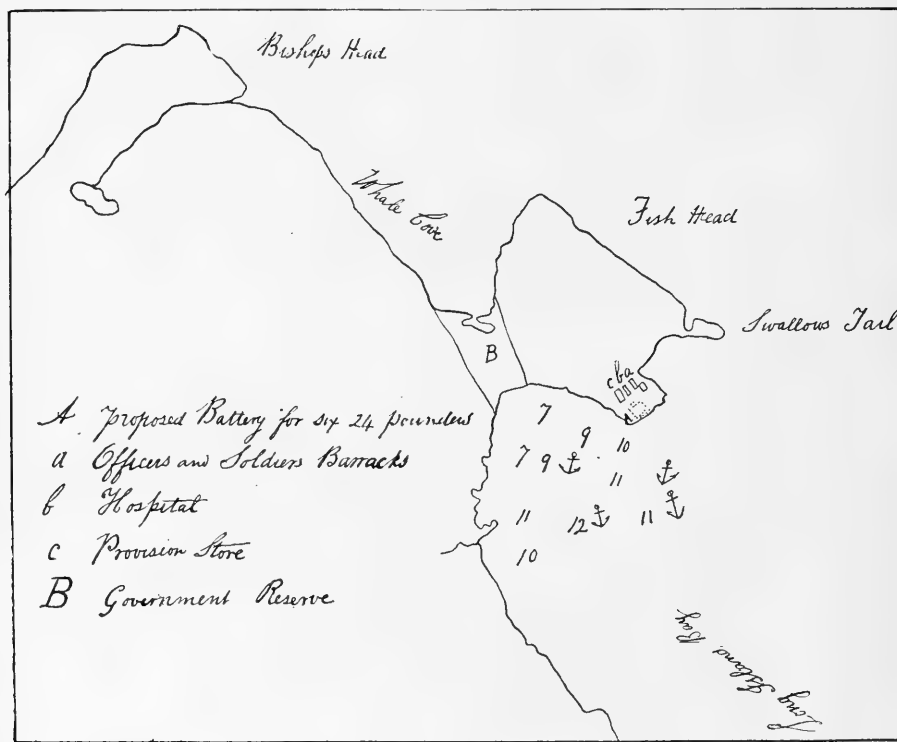 Bishops Head
Whale Cove
Fish Head
Swallows Tail
B
c b a
A Proposed Battery for six 24 pounders
a Officers and Soldiers Barracks
b Hospital
c Provision Store
B Government Reserve
7
9 10
7 9
11
11 12 11
10
Long Island Bay